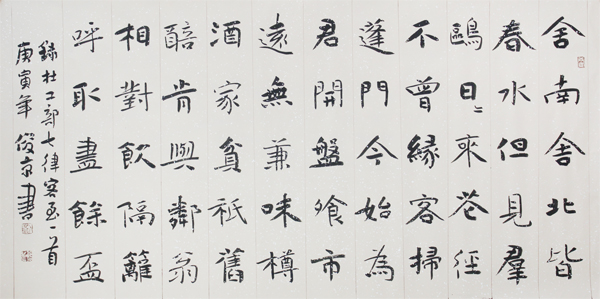 舍南舍北皆
春水但見羣
鷗日〻來花徑
不曾緣客掃
蓬門今始為
君開盤飧市
遠無兼味樽
酒家貧祇舊
醅肯與鄰翁
相對飲隔籬
呼取盡餘盃
錄杜工部七律客至一首
庚寅年俊京書